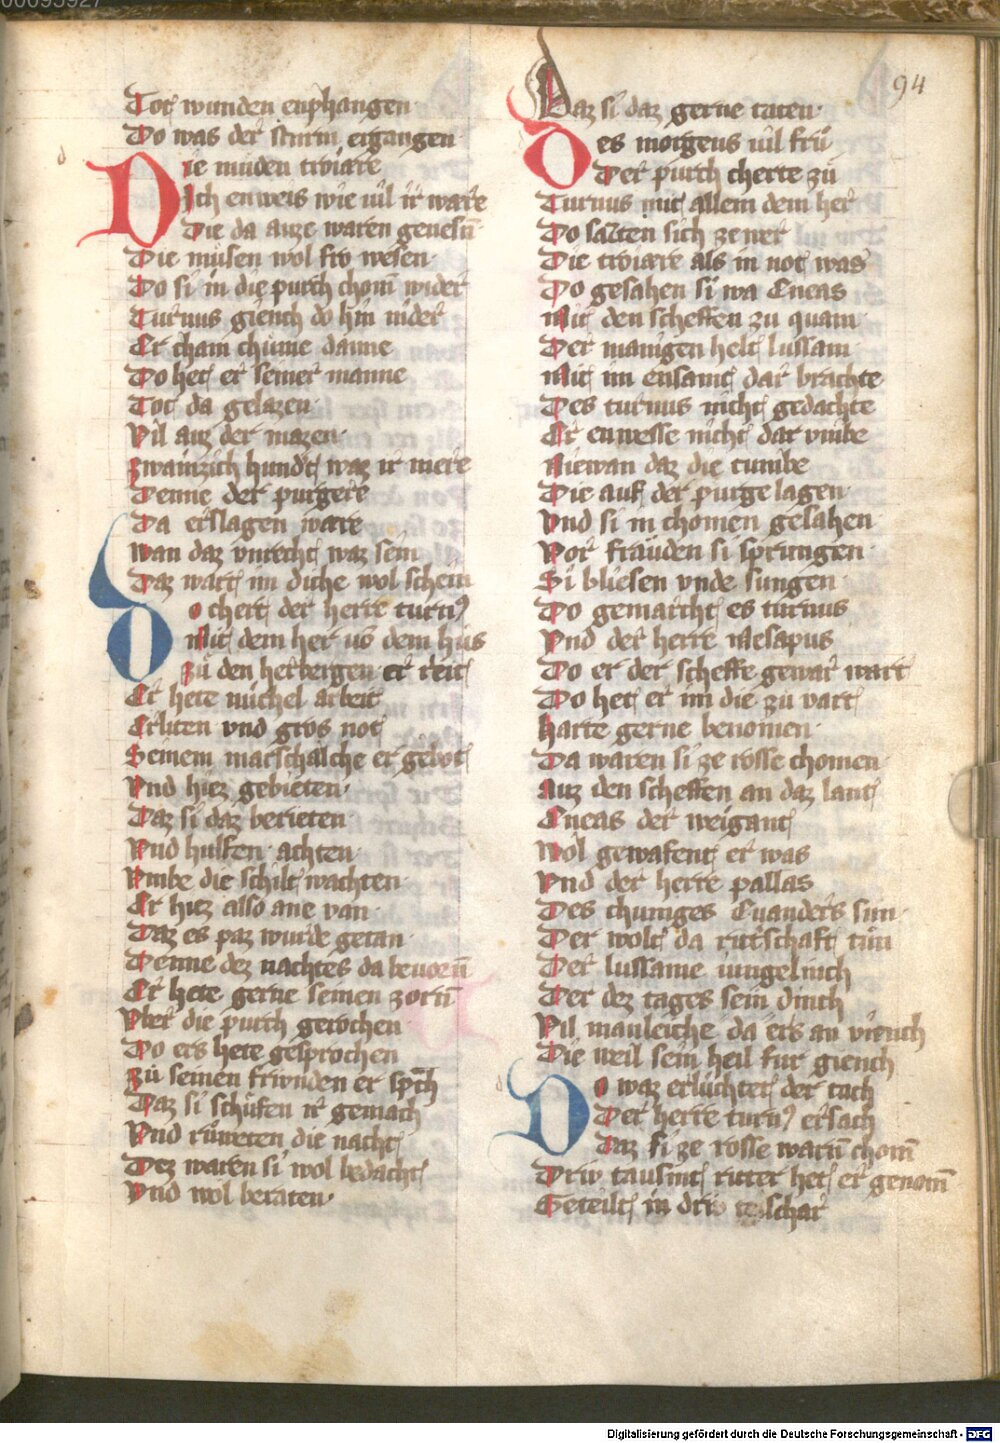 94
Tot wunden enphangen
Do was der sturm ergangen
Die muden troiare
Ich enweis wie uil ir ware
Die da auze waren genesn̄
Die müsen wol fro wesen
Do si in die purch chom̄ wider
Turnus giench do hin nider
Er cham chume danne
Do het er seiner manne
Tot da gelazen
Vil auz der mazen
zwainzich hundt waz ir mere
Denne der purgere
Da erslagen ware
wan daz vnrecht waz sein
Daz wart im diche wol schein
Do chert der herre turn9
Mit dem her uō dem hus
zů den herbergen er reit
Er hete michel arbeit
Erliten vnd gros not
Seinem marschalche er gebot
Vnd hiez gebieten
Daz si daz berieten
Vnd hulfen achten
Vmbe die schiltwachten
Er hiez also ane van
Daz es paz wurde getan
Denne dez nachtes da beuorn̄
Er hete gerne seinen zorn̄
Vber die purch gerochen
Do ers hete gesprochen
zů seinen friwnden er spch
Daz si schufen ir gemach
Vnd růweten die nacht
Dez waren si wol bedacht
Vnd wol beraten
Daz si daz gerne taten
Des morgens uil fru
Der purch cherte zů
Turnus mit allem dem her
Do satzten sich ze wer
Die troiare als in not was
Do gesahen si wa Eneas
Mit den scheffen zu quam
Der manigen helt lussam
Mit im ensamt dar brachte
Des turnus nicht gedachte
Er enwesse nicht dar vmbe
Niewan daz die tumbe
Die auf der purge lagen
Vnd si in chomen gesahen
Vor frauden si sprungen
Si bliesen vnde sungen
Do gemarcht es turnus
Vnd der herre Mesapus
Do er der scheffe gewar wart
Do het er im die zů vart
Harte gerne benomen
Da waren si ze rosse chomen
Auz den scheffen an daz lant
Eneas der weigant
Wol gewafent er was
Vnd der herre pallas
Des chuniges Euanders sun
Der wolt da ritterschaft tůn
Der lussame iungelinch
Der dez tages sein dinch
Vil manleiche da ers an viench
Die weil sein heil fur giench
Do waz erluchtet der tach
Der herre turn9 ersach
Daz si ze rosse warn̄ chom̄
Driv tausint ritter het er genom̄
Geteilt in driv schar
Digitalisierung gefördert durch die Deutsche Forschungsgemeinschaft - DFG